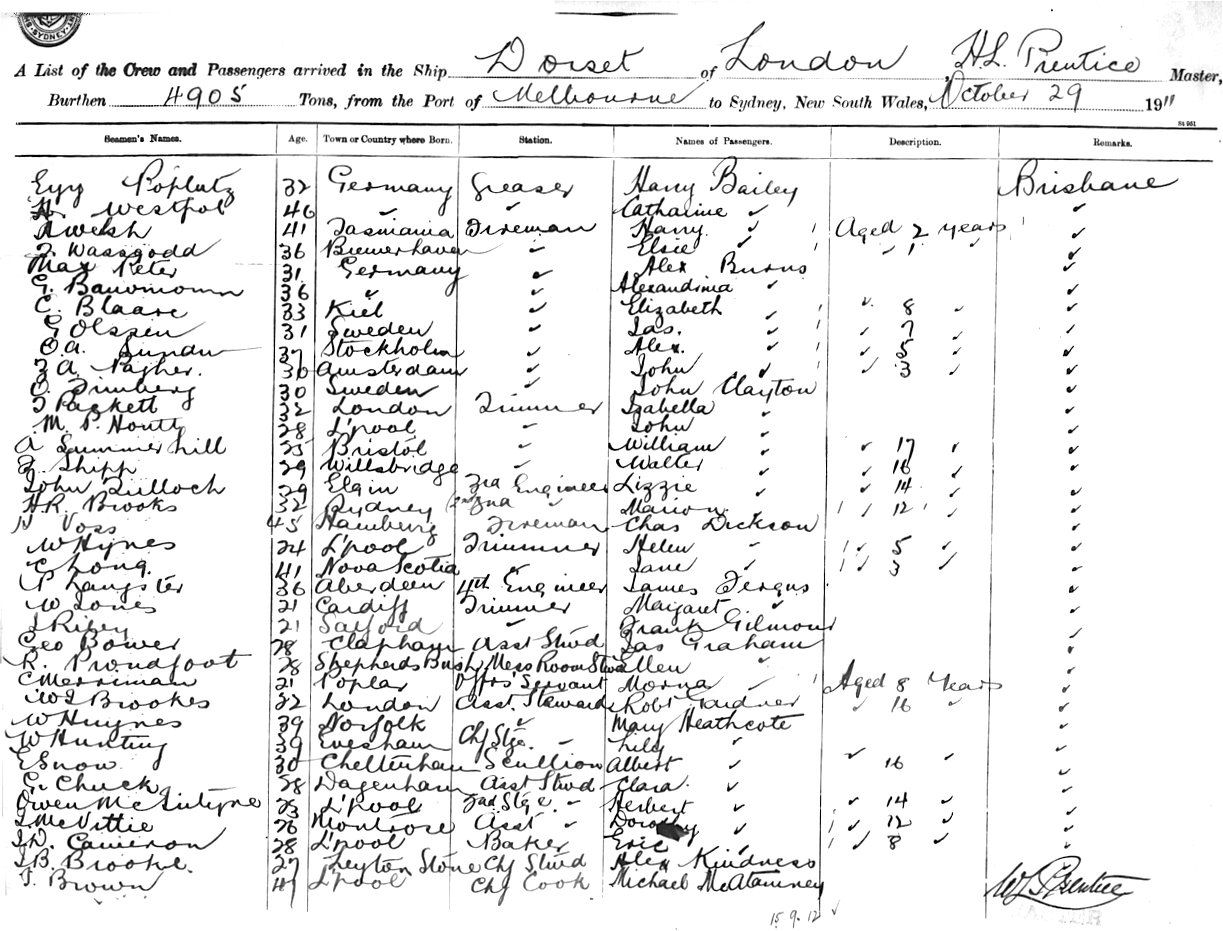 SYDNEY
A List of the Crew and Passengers arrived in the Ship Dorset of London, H.L. Prentice Master,
Burthen 4905 Tons, from the Port of Melbourne to Sydney, New South Wales, October 29 1911
St 951
Seamen's Names. Age. Town or Country where Born. Station. Names of Passengers. Description. Remarks.
Poplutz 32 Germany Greaser Harry Bailey Brisbane
H. Westpol 46 " " Catharine "
A Welsh 41 Tasmania Fireman Harry " Aged 2 years "
Wassgodd 36 Bremerhaven " Elsie " 1 " "
Max Peter 31 Germany " Alex Burns "
G. Baumann 36 " " Alexandrina " "
C. Blaare 33 Kiel " Elizabeth " " 8 " "
G Olssen 31 Sweden " Jas. " " 7 " "
O.A. 37 Stockholm " Alex. " " 5 " "
30 Amsterdam " John " " 3 " "
O. Timberg 30 Sweden " John Clayton "
J Packett 32 London Trimmer Isabella " "
M. P. 28 L'pool " John " "
A Summerhill 25 Bristol " William " " 17 " "
Shipp 29 Willsbridge " Walter " " 16 " "
John Tulloch 29 Elgin 3rd Engineer Lizzie " " 14 " "
H.R. Brooks 32 Sydney 2nd " Marion " " 12 " "
Voss 45 Hamburg Fireman Chas Dickson "
W Hynes 24 L'pool Trimmer Helen " " 5 " "
C Long 41 Nova Scotia " Jane " " 3 " "
P Langster 36 Aberdeen 4th Engineer James Fergus "
W Jones 21 Cardiff Trimmer Margaret " "
J Riley 21 Salford " Frank Gilmour "
Geo Bower 28 Clapham Asst Stwd Jas Graham "
R. Proudfoot 28 Shepherds Bush Mess Room Stwd Ellen " "
C Merriman 21 Poplar Offrs' Servant Morna " Aged 8 Years "
W J Brookes 22 London Asst. Steward Robt Gardner " 16 " "
W Huynes 39 Norfolk " Mary Heathcote "
W Hunting 39 Evesham Chf Stge. " Lily " "
E Snow 30 Cheltenham Scullion Albert " 16 " "
G. Chuck 28 Dagenham Asst Stwd Clara " "
Owen McIntyre 23 L'pool 2nd Stge " Herbert " " 14 " "
J McVittie 26 Montrose Asst " Dorothy " " 12 " "
J.D. Cameron 28 L'pool Baker Eric " " 8 " "
J.B. Brooke 27 Leyton Stone Chf Stwd Alex Kindness "
J. Brown 47 L'pool Chf Cook Michael McAtamney
W L Prentice
15.9.12